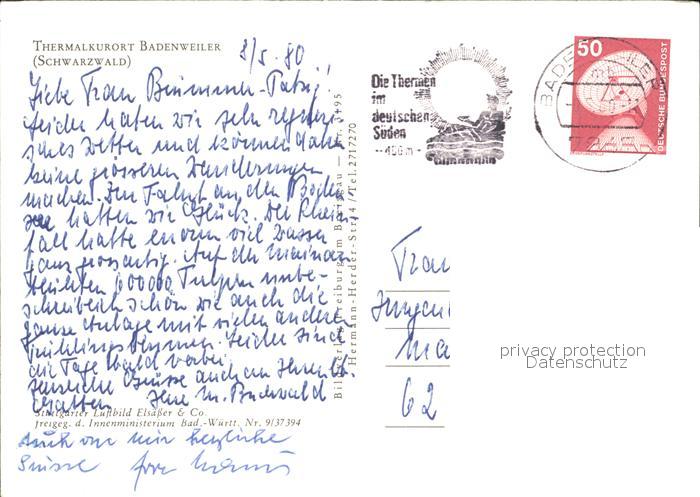 THERMALKURORT BADENWEILER
(SCHWARZWALD)
8/5.80
Liebe Frau
leider haben wir sehr regneri-
sches Wetter und können daher
keine grösseren Wanderungen
machen. Den Fahrt an den Boden-
see hatten wir Glück. Der Rhein-
fall hatte enorm viel Wasser
ganz grossartig. Auf der Mainau
blühten 600000 Tulpen unbe-
schreiblich schön wie auch die
ganze Anlage mit vielen anderen
Frühlingsblumen. Leider sind
die Tage bald vorbei.
Herzliche Grüsse auch an Ihren lb.
Gatten Ihre M. Buchwald
Stuttgarter Luftbild Elsäßer & Co.
freigeg. d. Innenministerium Bad.-Württ. Nr. 9/37394
Auch von mir herzliche
Grüsse
Hermann-Herder-Str. 4 / Tel. 2717270
Die Thermen
im
deutschen
Süden
- 450 m -
50
DEUTSCHE BUNDESPOST
Frau
62
privacy protection
Datenschutz